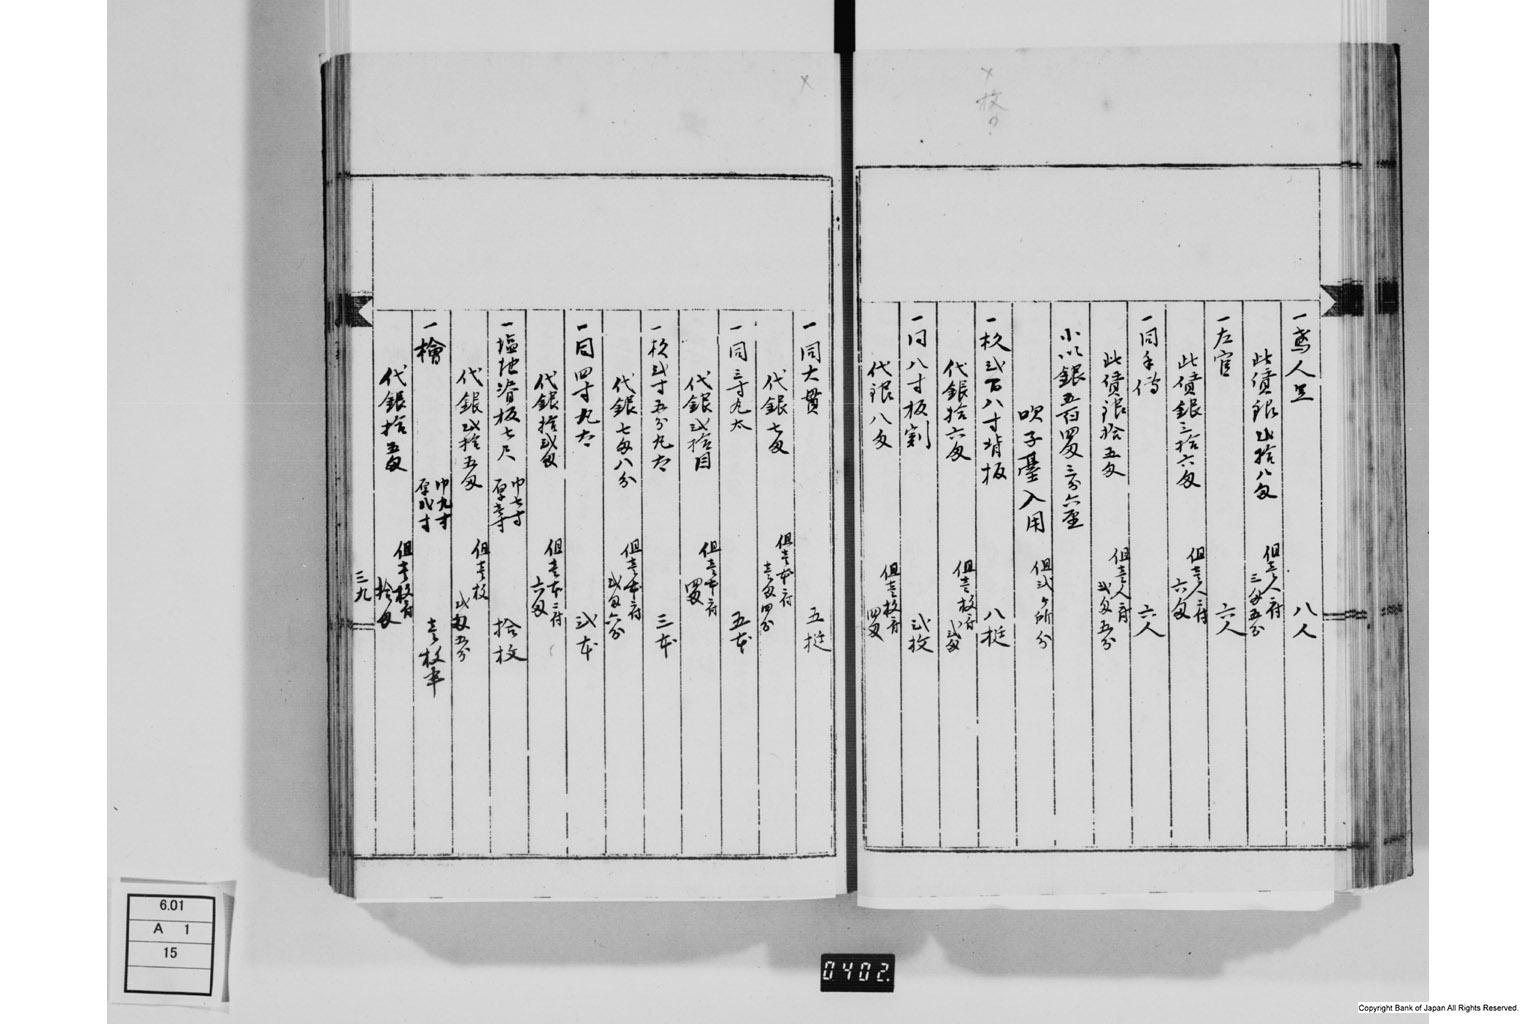 一鳶人足　八人
此賃銀弐拾八匁　但壱人ニ付三匁五分
一左官　六人
此賃銀三拾六匁　但壱人ニ付六匁
一同手傳　六人
此賃銀拾五匁　但壱人ニ付弐匁五分
小以銀五百四匁三分六厘
吹子臺入用　但弐ケ所分
一杉弐間八寸背板　八挺
代銀拾六匁　但壱枚ニ付弐匁
一同八寸板割　弐枚
代銀八匁　但壱枚ニ付四匁
一同大貫　五挺
代銀七匁　但壱本ニ付壱匁四分
一同三寸丸太　五本
代銀弐拾目　但壱本ニ付四匁
一杉弐寸五分丸太　三本
代銀七匁八分　但壱本ニ付弐匁六分
一同四寸丸太　弐本
代銀拾弐匁　但壱本ニ付六匁
一塩地背板七尺　巾七寸厚壱寸　拾枚
代銀弐拾五匁　但壱枚弐匁五分
一檜　巾九寸厚弐寸　壱枚半
代銀拾五匁　但壱枚ニ付拾匁
三九
×
枚
?
×
6.01
A 1
15
0402.
Copyright Bank of Japan All Rights Reserved.